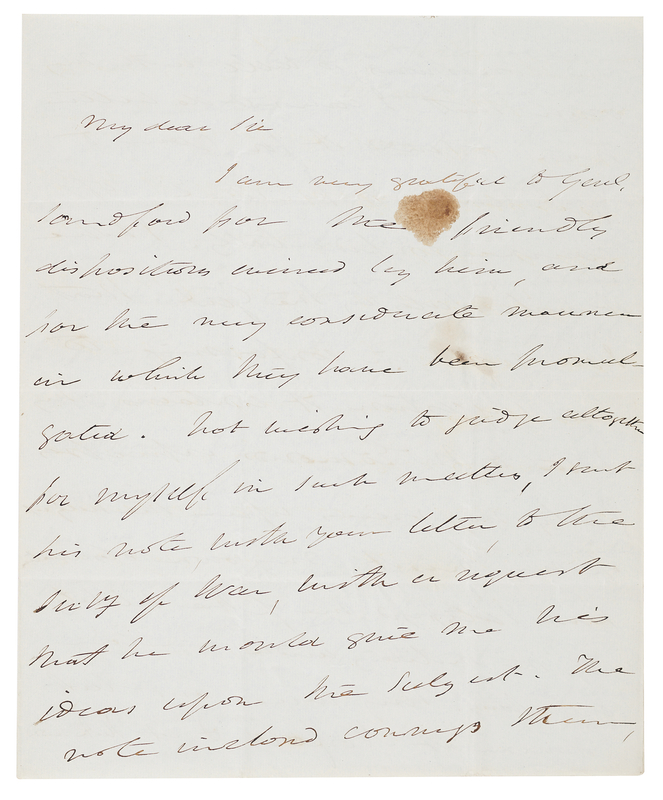 My dear Sir
I am very grateful to Genl.
Sandford for the friendly
dispositions evinced by him, and
for the very considerate manner
in which they have been promul-
gated. Not wishing to judge altogether
for myself in such matters, I sent
his note, with your letter, to the
Secty of War, with a request
that he would give me his
ideas upon the subject. The
note inclosed conveys them,